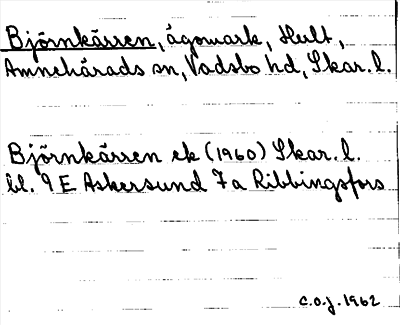 Björnkärren, ägomark, Hult,
Amnehärads sn, Vadsbo hd, Skar. l.
Björnkärren ek (1960) Skar. l.
bl. 9 E Askersund 7 a Ribbingsfors
c.o.j. 1962